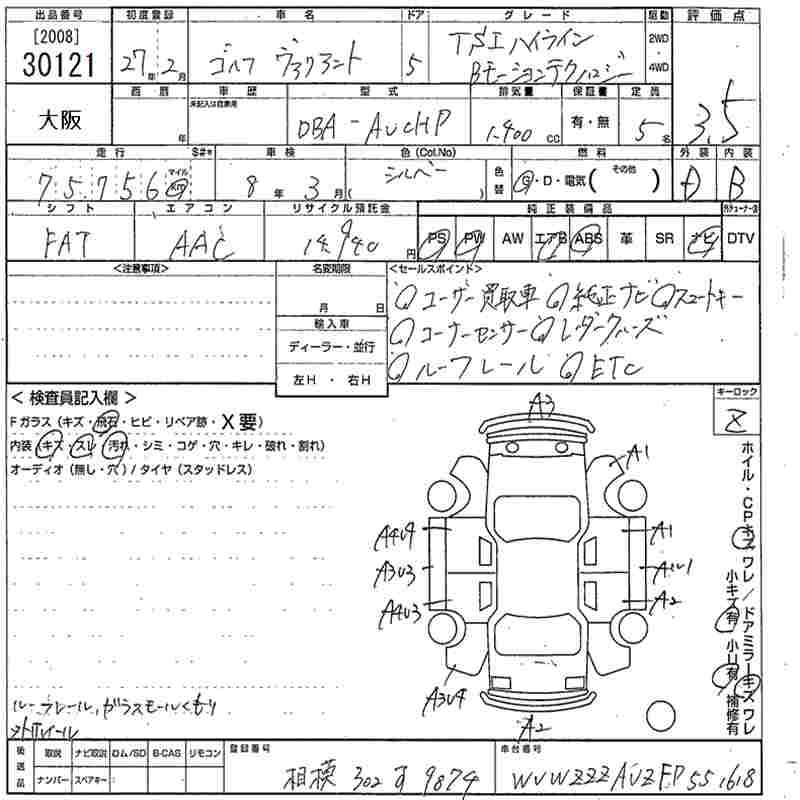 出品番号 初度登録 車名 ドア グレード 駆動 評価点
[2008]
30121 27年2月 ゴルフ ヴァリアント 5 TSIハイライン Bモーションテクノロジー 2WD・4WD 3.5
西暦 車歴 型式 排気量 保証書 定員
未記入は自家用
大阪 年 DBA-AUCHP 1,400cc 有・無 5名
走行 $#* 車検 色(Col.No) 燃料 外装 内装
75,756 マイル Km 8年3月 シルバー ( ) 色替 G・D・電気( その他 ) A B
シフト エアコン リサイクル預託金 純正装備品
FAT AAC 14,940円 PS PW AW エアB ABS 革 SR ナビ DTV
<注意事項> 名変期限 <セールスポイント>
月 日 ユーザー買取車 純正ナビ スマートキー
輸入車 コーナーセンサー レーダークルーズ
ディーラー・並行 ルーフレール ETC
左H・右H
< 検査員記入欄 > キーロック
Fガラス(キズ・飛石・ヒビ・リペア跡・X要)
内装(キズ・スレ・汚れ・シミ・コゲ・穴・キレ・破れ・割れ)
オーディオ(無し・穴)/タイヤ(スタッドレス)
A3
A1
A4U4 A1
A3U3
A4U3 A2
A3U4
A2
ホイル・CPキズワレ/ドアミラーキズワレ
小キズ有 小U有 補修有
ルーフレール,ガラスモールくもり
後送品 取説 ナビ取説 ロム/SD B-CAS リモコン 登録番号 車台番号
ナンバー スペアキー 相模 302 す 9874 WVWZZZAUZFP551618